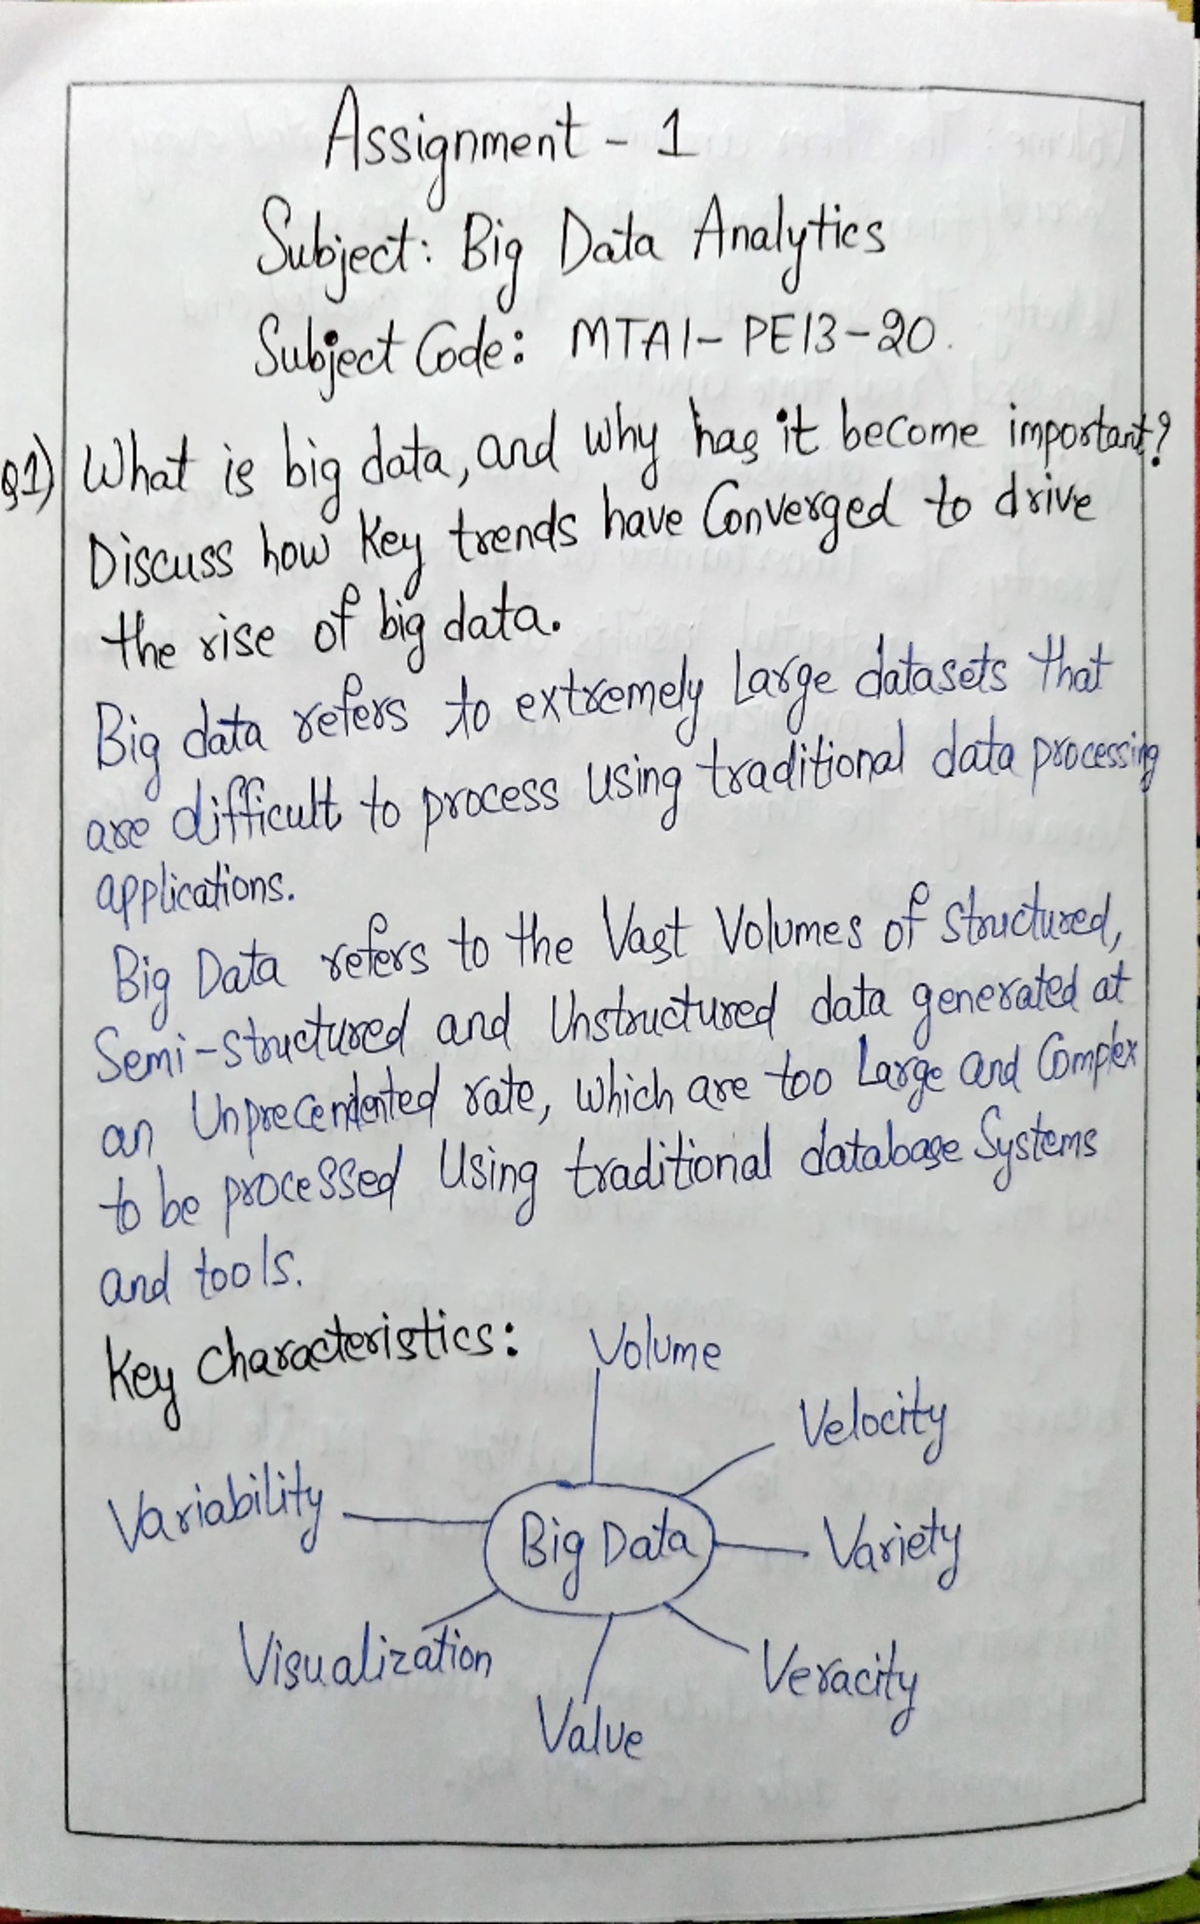 Assignment - 1
Subject: Big Data Analytics
Subject Code: MTAI-PE13-20.
Q1) What is big data, and why has it become important?
Discuss how Key trends have Converged to drive
the rise of big data.
Big data refers to extremely Large datasets that
are difficult to process using traditional data processing
applications.
Big Data refers to the Vast Volumes of Structured,
Semi-structured and Unstructured data generated at
an Unprecendented rate, which are too Large and Complex
to be processed Using traditional database Systems
and tools.
Key Characteristics:
Volume
Velocity
Variability
Big Data
Variety
Visualization
Veracity
Value